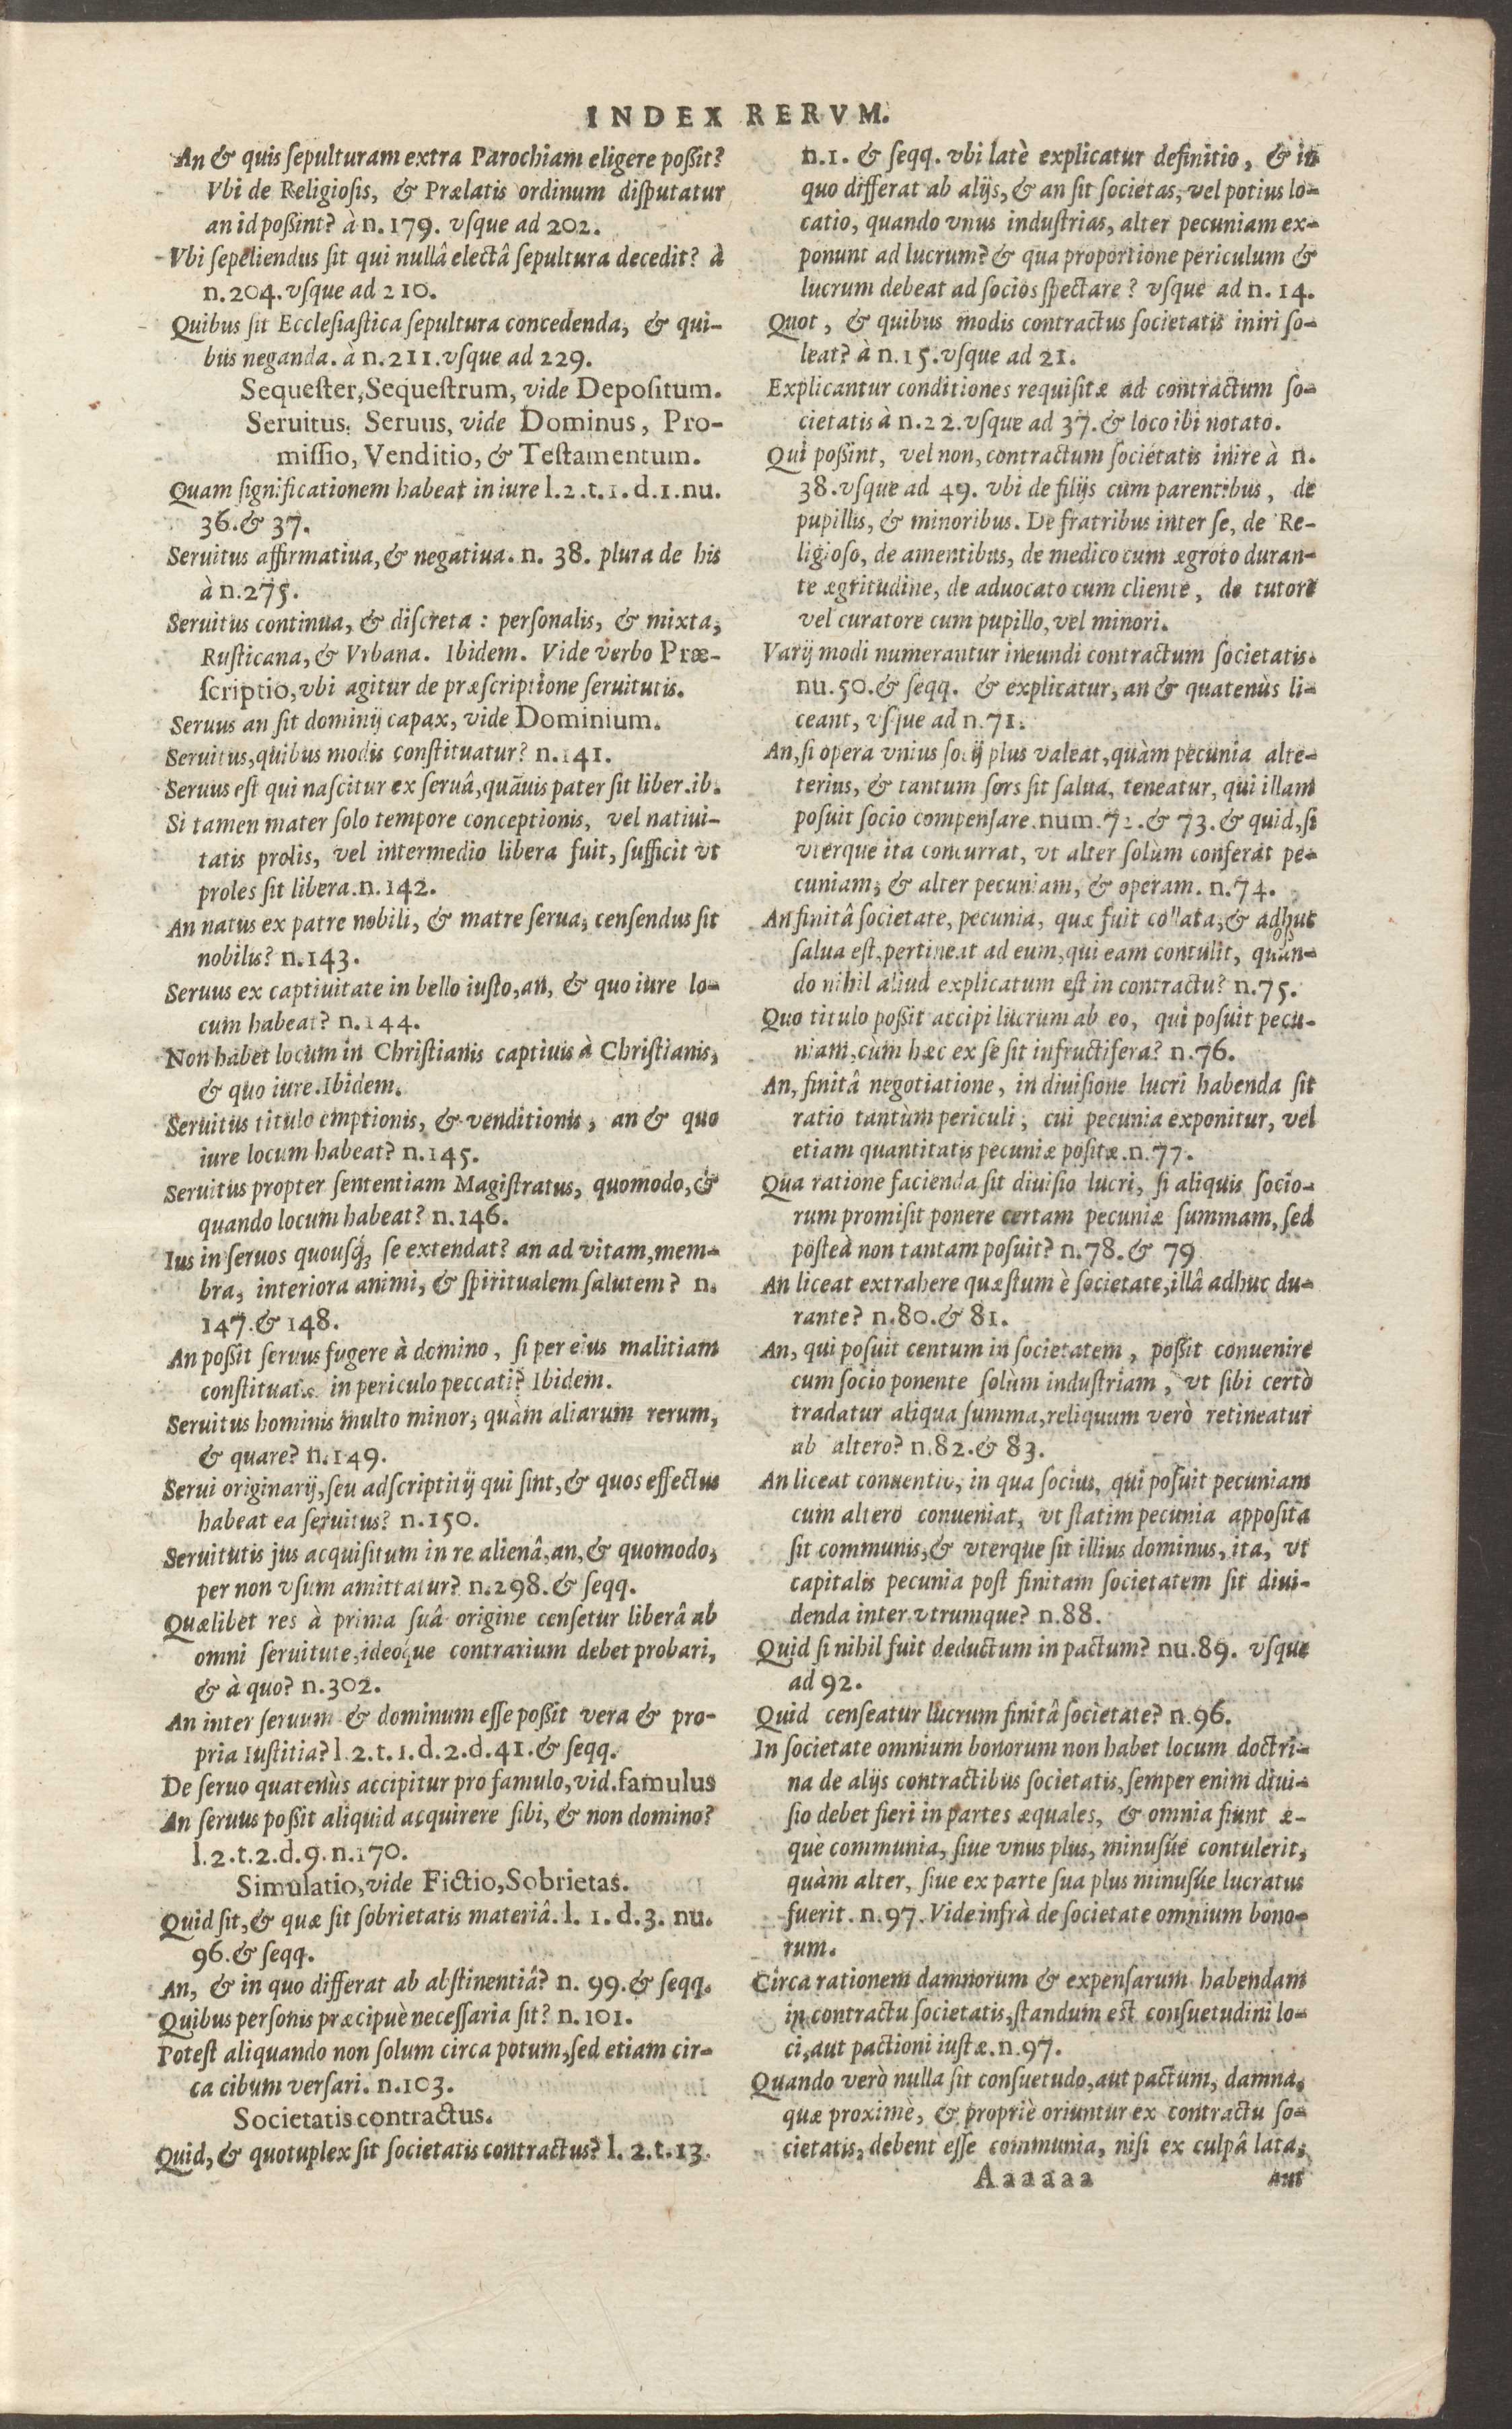 INDEX RERVM.
An & quis ſepulturam extra Parochiam eligere poßit?
Vbi de Religioſis, & Prælatis ordinum diſputatur
an id poßint? à n. 179. vſque ad 202.
Vbi ſepeliendus ſit qui nullâ electâ ſepultura decedit? à
n. 204. vſque ad 210.
Quibus ſit Eccleſiaſtica ſepultura concedenda, & qui-
bus neganda. à n. 211. vſque ad 229.
Sequeſter, Sequeſtrum, vide Depoſitum.
Seruitus, Seruus, vide Dominus, Pro-
miſſio, Venditio, & Teſtamentum.
Quam ſignificationem habeat in iure l. 2. t. 1. d. 1. nu.
36. & 37.
Seruitus affirmatiua, & negatiua. n. 38. plura de his
à n. 275.
Seruitus continua, & diſcreta : perſonalis, & mixta,
Ruſticana, & Vrbana. Ibidem. Vide verbo Præ-
ſcriptio, vbi agitur de præſcriptione ſeruitutis.
Seruus an ſit dominij capax, vide Dominium.
Seruitus, quibus modis conſtituatur? n. 141.
Seruus eſt qui naſcitur ex ſeruâ, quãuis pater ſit liber. ib.
Si tamen mater ſolo tempore conceptionis, vel natiui-
tatis prolis, vel intermedio libera fuit, ſufficit vt
proles ſit libera. n. 142.
An natus ex patre nobili, & matre ſerua, cenſendus ſit
nobilis? n. 143.
Seruus ex captiuitate in bello iuſto, an, & quo iure lo-
cum habeat? n. 144.
Non habet locum in Chriſtianis captiuis à Chriſtianis,
& quo iure. Ibidem.
Seruitus titulo emptionis, & venditionis, an & quo
iure locum habeat? n. 145.
Seruitus propter ſententiam Magiſtratus, quomodo, &
quando locum habeat? n. 146.
Ius in ſeruos quouſq́ꝫ ſe extendat? an ad vitam, mem-
bra, interiora animi, & ſpiritualem ſalutem? n.
147. & 148.
An poßit ſeruus fugere à domino, ſi per eius malitiam
conſtituatur in periculo peccati? Ibidem.
Seruitus hominis multo minor, quàm aliarum rerum,
& quare? n. 149.
Serui originarij, ſeu adſcriptitij qui ſint, & quos effectus
habeat ea ſeruitus? n. 150.
Seruitutis jus acquiſitum in re alienâ, an, & quomodo,
per non vſum amittatur? n. 298. & ſeqq.
Quælibet res à prima ſuâ origine cenſetur liberâ ab
omni ſeruitute, ideoque contrarium debet probari,
& à quo? n. 302.
An inter ſeruum & dominum eſſe poßit vera & pro-
pria Iuſtitia? l. 2. t. 1. d. 2. d. 41. & ſeqq.
De ſeruo quatenùs accipitur pro famulo, vid. famulus
An ſeruus poßit aliquid acquirere ſibi, & non domino?
l. 2. t. 2. d. 9. n. 170.
Simulatio, vide Fictio, Sobrietas.
Quid ſit, & quæ ſit ſobrietatis materiâ. l. 1. d. 3. nu.
96. & ſeqq.
An, & in quo differat ab abſtinentiâ? n. 99. & ſeqq.
Quibus perſonis præcipuè neceſſaria ſit? n. 101.
Poteſt aliquando non ſolum circa potum, ſed etiam cir-
ca cibum verſari. n. 103.
Societatis contractus.
Quid, & quotuplex ſit ſocietatis contractus? l. 2. t. 13.
n. 1. & ſeqq. vbi latè explicatur definitio, & in
quo differat ab alijs, & an ſit ſocietas, vel potius lo-
catio, quando vnus induſtrias, alter pecuniam ex-
ponunt ad lucrum? & qua proportione periculum &
lucrum debeat ad ſocios ſpectare? vſque ad n. 14.
Quot, & quibus modis contractus ſocietatis iniri ſo-
leat? à n. 15. vſque ad 21.
Explicantur conditiones requiſitæ ad contractum ſo-
cietatis à n. 22. vſque ad 37. & loco ibi notato.
Qui poßint, vel non, contractum ſocietatis inire à n.
38. vſque ad 49. vbi de filijs cum parentibus, de
pupillis, & minoribus. De fratribus inter ſe, de Re-
ligioſo, de amentibus, de medico cum ægroto duran-
te ægritudine, de aduocato cum cliente, de tutore
vel curatore cum pupillo, vel minori.
Varij modi numerantur ineundi contractum ſocietatis.
nu. 50. & ſeqq. & explicatur, an & quatenùs li-
ceant, vſque ad n. 71.
An, ſi opera vnius ſocij plus valeat, quàm pecunia alte-
terius, & tantum ſors ſit ſalua, teneatur, qui illam
poſuit ſocio compenſare. num. 72. & 73. & quid, ſi
vterque ita concurrat, vt alter ſolùm conferat pe-
cuniam, & alter pecuniam, & operam. n. 74.
An finitâ ſocietate, pecunia, quæ fuit collata, & adhuc
ſalua eſt, pertineat ad eum, qui eam contulit, quan-
do nihil aliud explicatum eſt in contractu? n. 75.
Quo titulo poßit accipi lucrum ab eo, qui poſuit pecu-
niam, cùm hæc ex ſe ſit infructifera? n. 76.
An, finitâ negotiatione, in diuiſione lucri habenda ſit
ratio tantùm periculi, cui pecunia exponitur, vel
etiam quantitatis pecuniæ poſitæ. n. 77.
Qua ratione facienda ſit diuiſio lucri, ſi aliquis ſocio-
rum promiſit ponere certam pecuniæ ſummam, ſed
poſteà non tantam poſuit? n. 78. & 79
An liceat extrahere quæſtum è ſocietate, illâ adhuc du-
rante? n. 80. & 81.
An, qui poſuit centum in ſocietatem, poßit conuenire
cum ſocio ponente ſolùm induſtriam, vt ſibi certò
tradatur aliqua ſumma, reliquum verò retineatur
ab altero? n. 82. & 83.
An liceat conuentio, in qua ſocius, qui poſuit pecuniam
cum altero conueniat, vt ſtatim pecunia appoſita
ſit communis, & vterque ſit illius dominus, ita, vt
capitalis pecunia poſt finitam ſocietatem ſit diui-
denda inter vtrumque? n. 88.
Quid ſi nihil fuit deductum in pactum? nu. 89. vſque
ad 92.
Quid cenſeatur lucrum finitâ ſocietate? n. 96.
In ſocietate omnium bonorum non habet locum doctri-
na de alijs contractibus ſocietatis, ſemper enim diui-
ſio debet fieri in partes æquales, & omnia fiunt æ-
què communia, ſiue vnus plus, minuſúe contulerit,
quàm alter, ſiue ex parte ſua plus minuſúe lucratus
fuerit. n. 97. Vide infrà de ſocietate omnium bono-
rum.
Circa rationem damnorum & expenſarum habendam
in contractu ſocietatis, ſtandum eſt conſuetudini lo-
ci, aut pactioni iuſtæ. n. 97.
Quando verò nulla ſit conſuetudo, aut pactum, damna,
quæ proximè, & propriè oriuntur ex contractu ſo-
cietatis, debent eſſe communia, niſi ex culpâ lata,
Aaaaaa aut